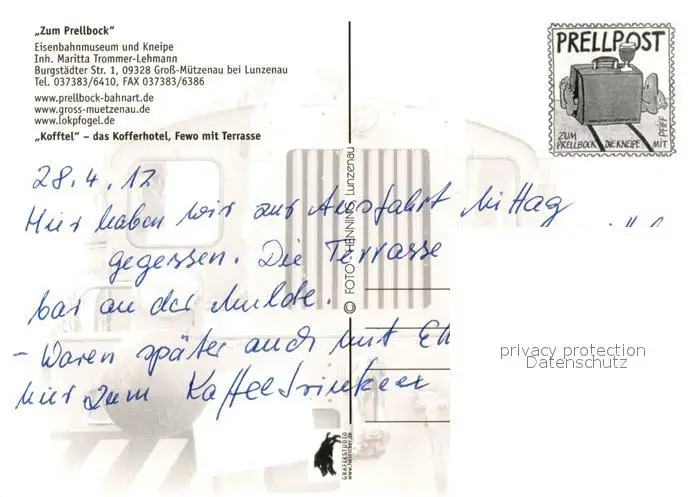 „Zum Prellbock“
Eisenbahnmuseum und Kneipe
Inh. Maritta Trommer-Lehmann
Burgstädter Str. 1, 09328 Groß-Mützenau bei Lunzenau
Tel. 037383/6410, FAX 037383/6386
www.prellbock-bahnart.de
www.gross-muetzenau.de
www.lokpfogel.de
„Kofftel“ – das Kofferhotel, Fewo mit Terrasse
PRELLPOST
ZUM PRELLBOCK DIE KNEIPE MIT PFIFF
28.4.12
Hier haben wir zur Ausfahrt Mittag
gegessen. Die Terrasse
war an der Mulde.
- Waren später auch mit
hier zum Kaffeetrinken
© FOTO-HENNIG Lunzenau
GRAFIKSTUDIO
privacy protection
Datenschutz